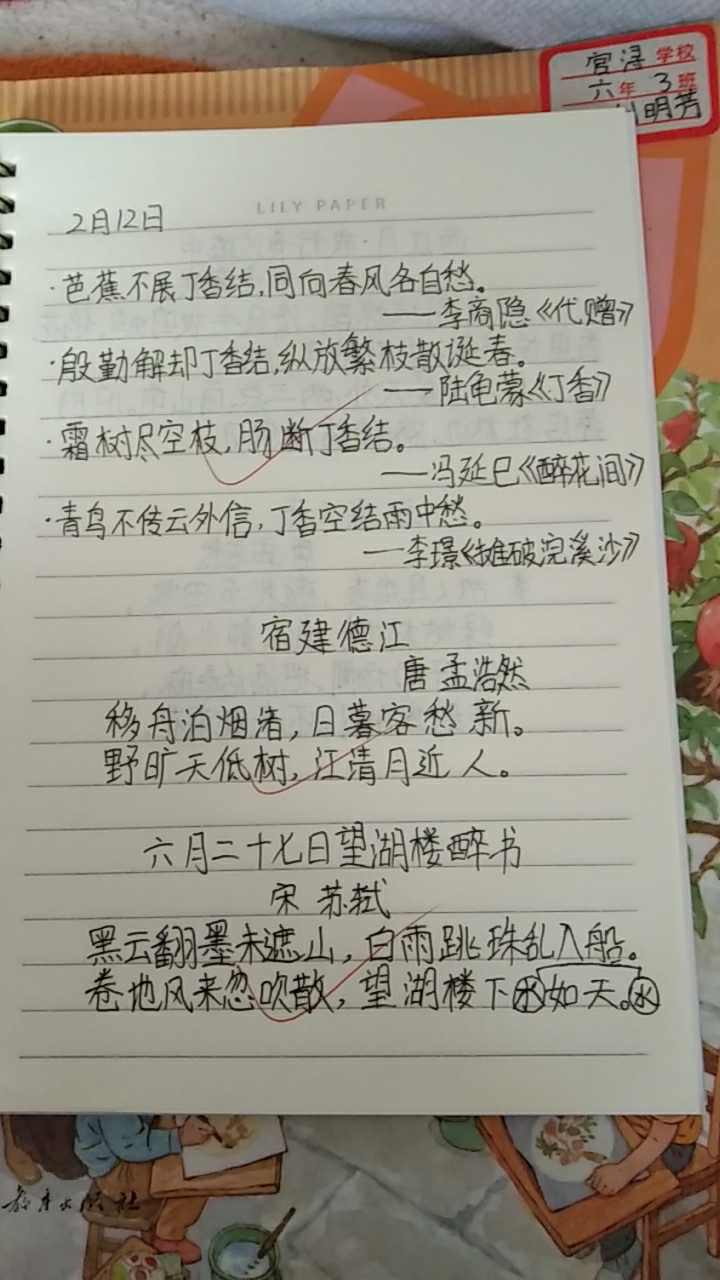 官浔学校
六年3班
明芳
LILY PAPER
2月12日
·芭蕉不展丁香结,同向春风各自愁。
——李商隐《代赠》
·殷勤解却丁香结,纵放繁枝散诞春。
——陆龟蒙《丁香》
·霜树尽空枝,肠断丁香结。
——冯延巳《醉花间》
·青鸟不传云外信,丁香空结雨中愁。
——李璟《摊破浣溪沙》
宿建德江
唐 孟浩然
移舟泊烟渚,日暮客愁新。
野旷天低树,江清月近人。
六月二十七日望湖楼醉书
宋 苏轼
黑云翻墨未遮山,白雨跳珠乱入船。
卷地风来忽吹散,望湖楼下水如天。水
教育出版社